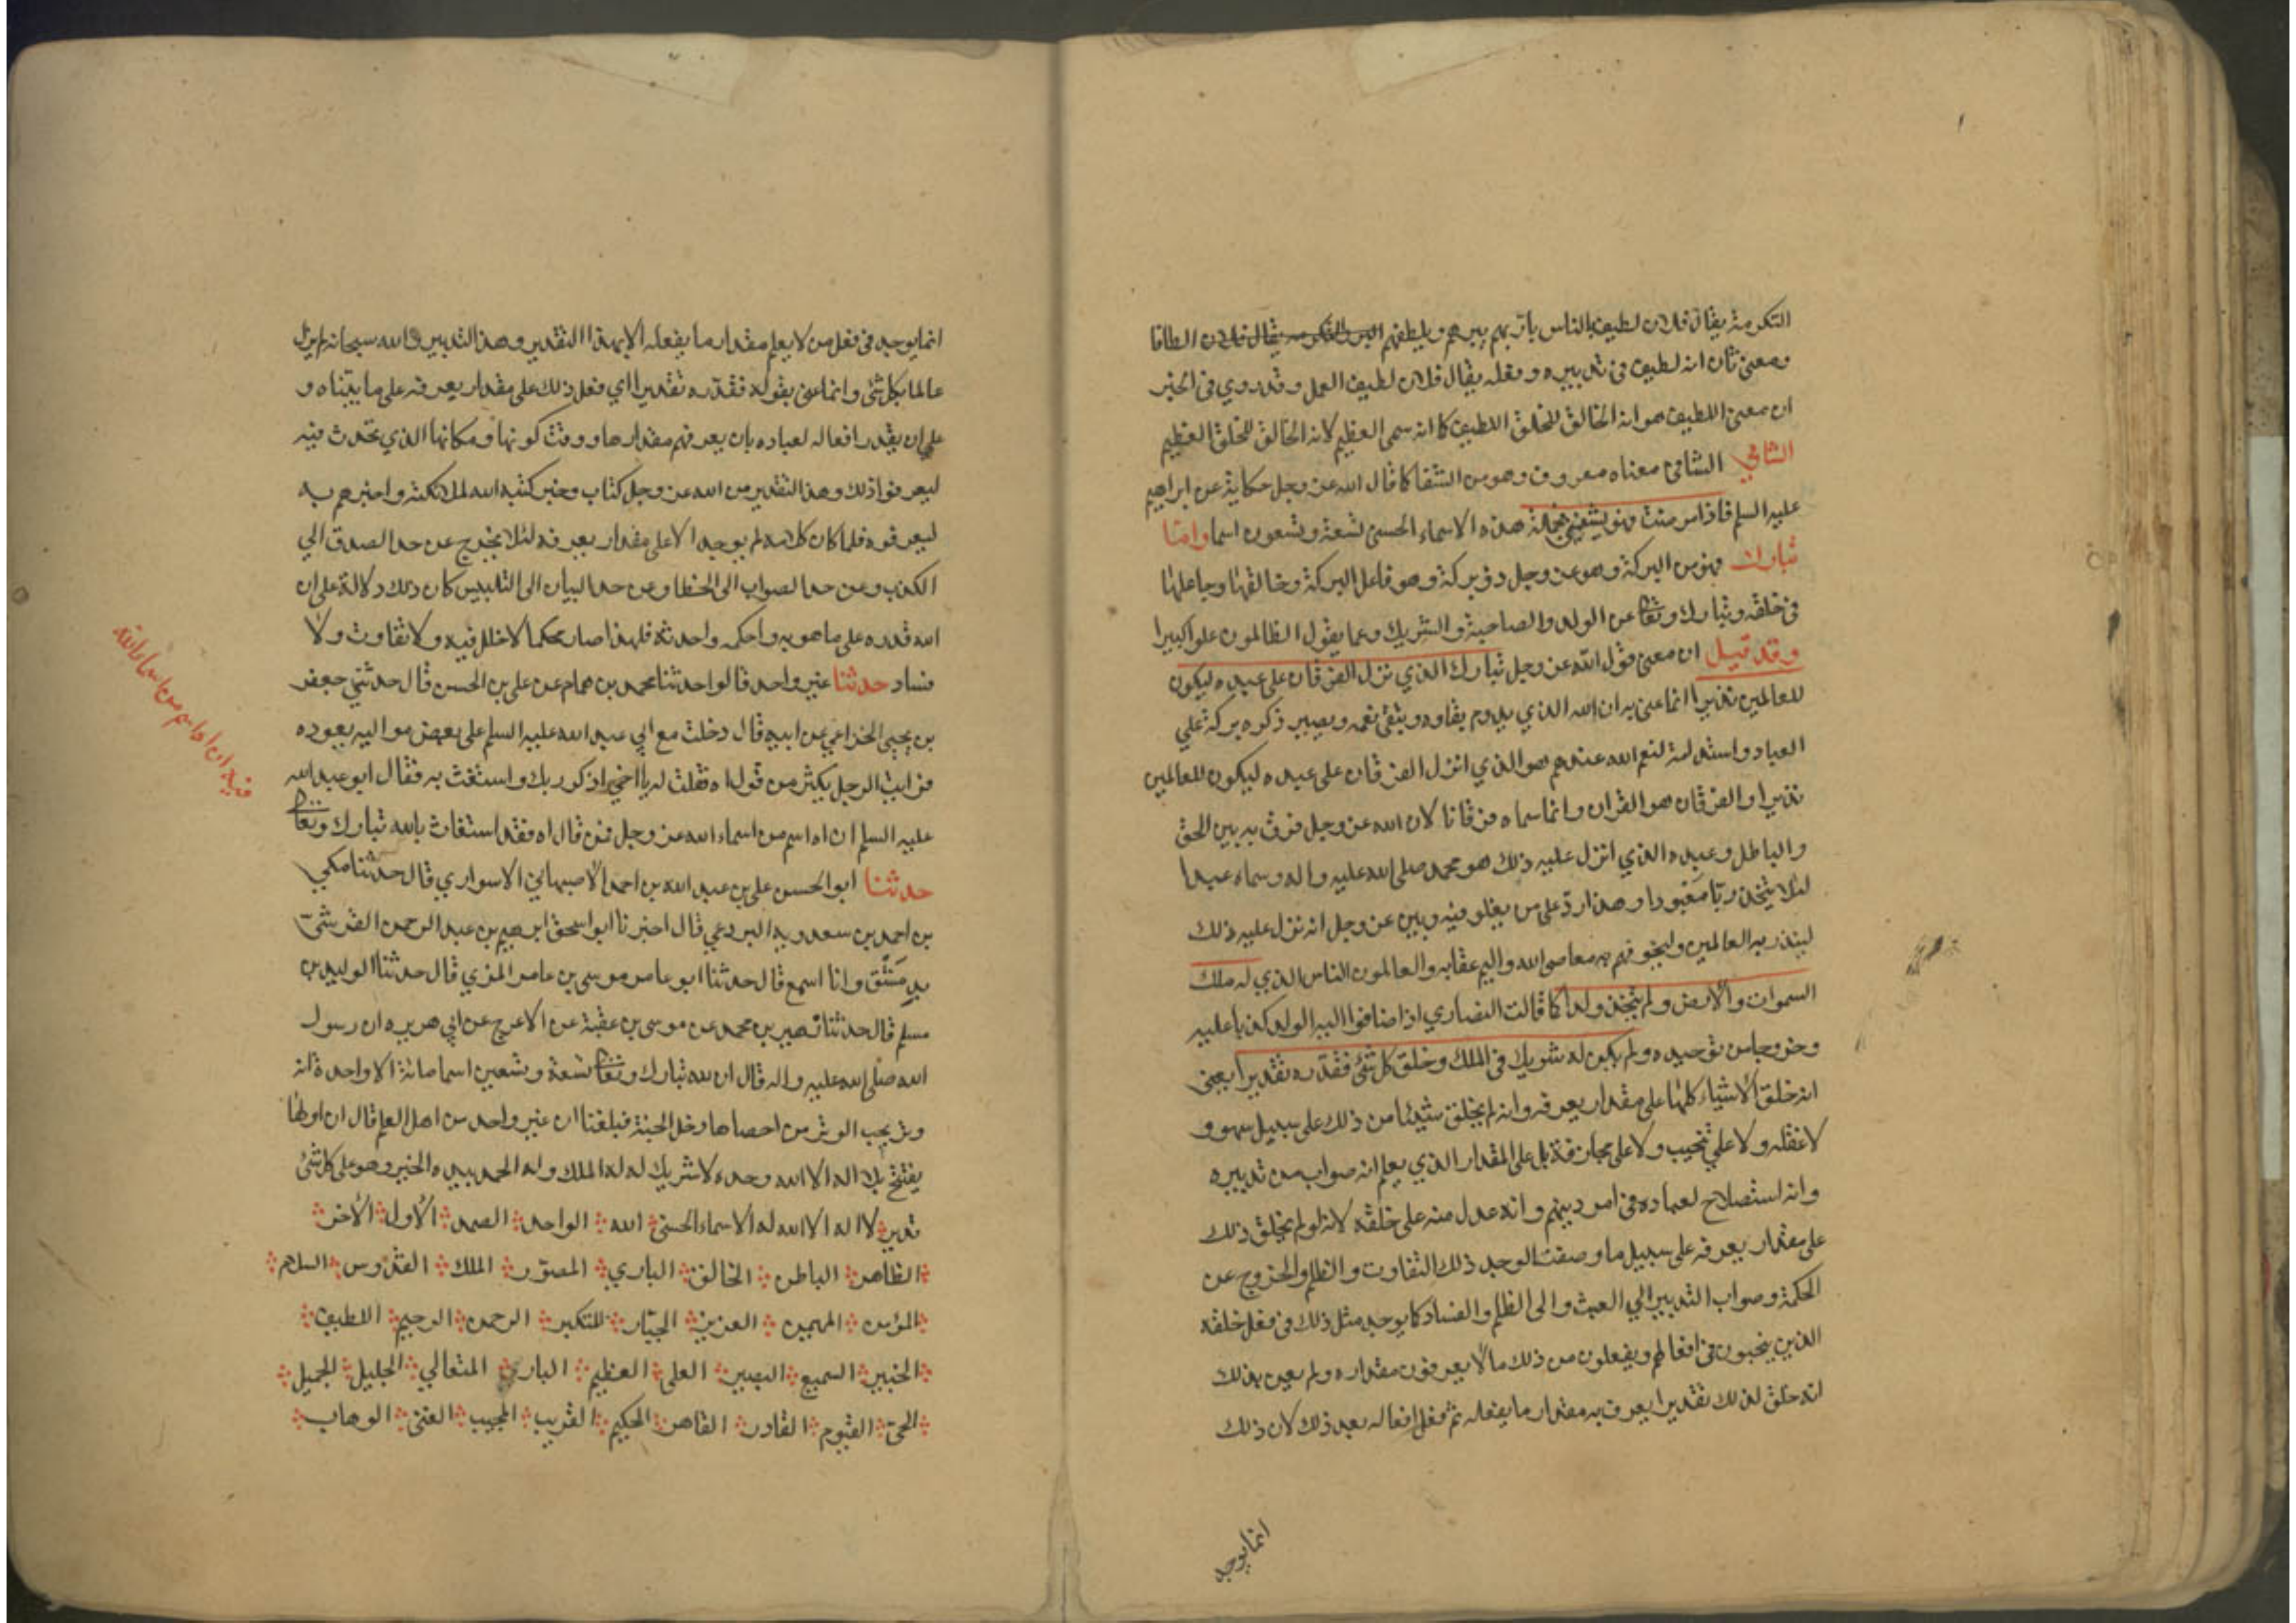 التكرمة يقال فلان لطيف بالناس بارّ بهم يبرهم ويلطفهم البر والتكرمه يقال فلان الطافا
ومعنى ثان انه لطيف في تدبيره وفعله يقال فلان لطيف العمل وقد روي في الخبر
ان معنى اللطيف هو انه الخالق للخلق اللطيف كما انه سمى العظيم لانه الخالق للخلق العظيم
الشافي الشافى معناه معروف وهو من الشفا كما قال الله عز وجل حكاية عن ابراهيم
عليه السلم فاذا مرضت فهو يشفين فجملة هذه الاسماء الحسنى تسعة وتسعون اسما وامّا
تبارك فهو من البركة وهو عز وجل ذو بركة وهو فاعل البركة وخالقها وجاعلها
في خلقه وتبارك وتعالى عن الولد والصاحبة والشريك وعما يقول الظالمون علوا كبيرا
وقد قيل ان معنى قول الله عز وجل تبارك الذي نزل الفرقان على عبده ليكون
للعالمين نذيرا انما عنى به ان الله الذي يدوم بقاوه وتبقى نعمه ويصير ذكره بركة على
العباد واستدامة لنعم الله عندهم هو الذي انزل الفرقان على عبده ليكون للعالمين
نذيرا والفرقان هو القران وانما سماه فرقانا لان الله عز وجل فرق به بين الحق
والباطل وعبده الذي انزل عليه ذلك هو محمد صلى الله عليه واله وسماه عبدا
لئلا يتخذ ربّا معبودا وهذا ردّ على من يغلو فيه وبين عز وجل انه نزل عليه ذلك
لينذر به العالمين وليخوفهم به معاصى الله واليم عقابه والعالمون الناس الذي له ملك
السموات والارض ولم يتخذ ولدا كما قالت النصاري اذا ضافوا اليه الولد كذبا عليه
وخروجا من توحيده ولم يكن له شريك في الملك وخلق كل شئ فقدّره تقديرا يعنى
انه خلق الاشياء كلها على مقدار يعرفه وانه لم يخلق شيئا من ذلك على سبيل سهو و
لا غفله ولا على تنحيب ولا على مجازفة بل على المقدار الذي يعلم انه صواب من تدبيره
وانه استصلاح لعباده في امر دينهم وانه عدل منه على خلقه لانه لو لم يخلق ذلك
على مقدار يعرفه على سبيل ما وصفت لوجد ذلك التفاوت والظلم والخروج عن
الحكمة وصواب التدبير الي العبث والى الظلم والفساد كما يوجد مثل ذلك في فعل خلقه
الذين ينحبون في افعالهم ويفعلون من ذلك ما لا يعرفون مقداره ولم يعن بذلك
انه خلق لذلك تقديرا يعرف به مقدار ما يفعله ثم فعل افعاله بعد ذلك لان ذلك
انما يوجد
انما يوجد في فعل من لا يعلم مقدار ما يفعله الا بهذا التقدير وهذا التدبير والله سبحانه لم يزل
عالما بكل شئ وانما عنى بقوله فقدّره تقديرا اي فعل ذلك على مقدار يعرفه على ما بيّناه و
على ان يقدر افعاله لعباده بان يعرفهم مقدارها ووقت كونها ومكانها الذي يحدث فيه
ليعرفوا ذلك وهذا التقدير من الله عز وجل كتاب وخبر كتبه الله لملائكته واخبرهم به
ليعرفوه فلما كان كلامه لم يوجد الا على مقدار يعرفه لئلا يخرج عن حد الصدق الي
الكذب وعن حد الصواب الى الخطا وعن حد البيان الى التلبيس كان ذلك دلالة على ان
الله قدره على ما هو به واحكمه واحدثه فلهذا صار محكما لا خلل فيه ولا تفاوت ولا
فساد حدثنا غير واحد قالوا حدثنا محمد بن همام عن على بن الحسن قال حدثني جعفر
بن يحيى الخزاعي عن ابيه قال دخلت مع ابي عبد الله عليه السلم على بعض مواليه يعوده
فرايت الرجل يكثر من قول اه فقلت له يا اخي اذكر ربك واستغث به فقال ابو عبد الله
عليه السلم ان اه اسم من اسماء الله عز وجل فمن قال اه فقد استغاث بالله تبارك وتعالى
حدثنا ابو الحسن على بن عبد الله بن احمد الاصبهاني الاسواري قال حدثنا مكي
بن احمد بن سعدويه البردعي قال اخبرنا ابو اسحق ابرهيم بن عبد الرحمن القرشيّ
بدِمَشْق وانا اسمع قال حدثنا ابو عامر موسى بن عامر المري قال حدثنا الوليد بن
مسلم قال حدثنا زهير بن محمد عن موسى بن عقبة عن الاعرج عن ابي هريره ان رسول
الله صلى الله عليه واله قال ان لله تبارك وتعالى تسعة وتسعين اسما مائة الا واحدة انه
وتر يحب الوتر من احصاها دخل الجنة فبلغنا ان غير واحد من اهل العلم قال ان اولها
يفتتح بلا اله الا الله وحده لا شريك له له الملك وله الحمد بيده الخير وهو على كل شئ
قدير لا اله الا الله له الاسماء الحسنى الله الواحد الصمد الاول الاخر
الظاهر الباطن الخالق الباري المصوّر الملك القدّوس السلام
المؤمن المهيمن العزيز الجبّار المتكبر الرحمن الرحيم اللطيف
الخبير السميع البصير العلى العظيم البارئ المتعالي الجليل الجميل
الحىّ القيوم القادر القاهر الحكيم القريب المجيب الغنى الوهاب
فيه ان اه اسم من اسماء الله